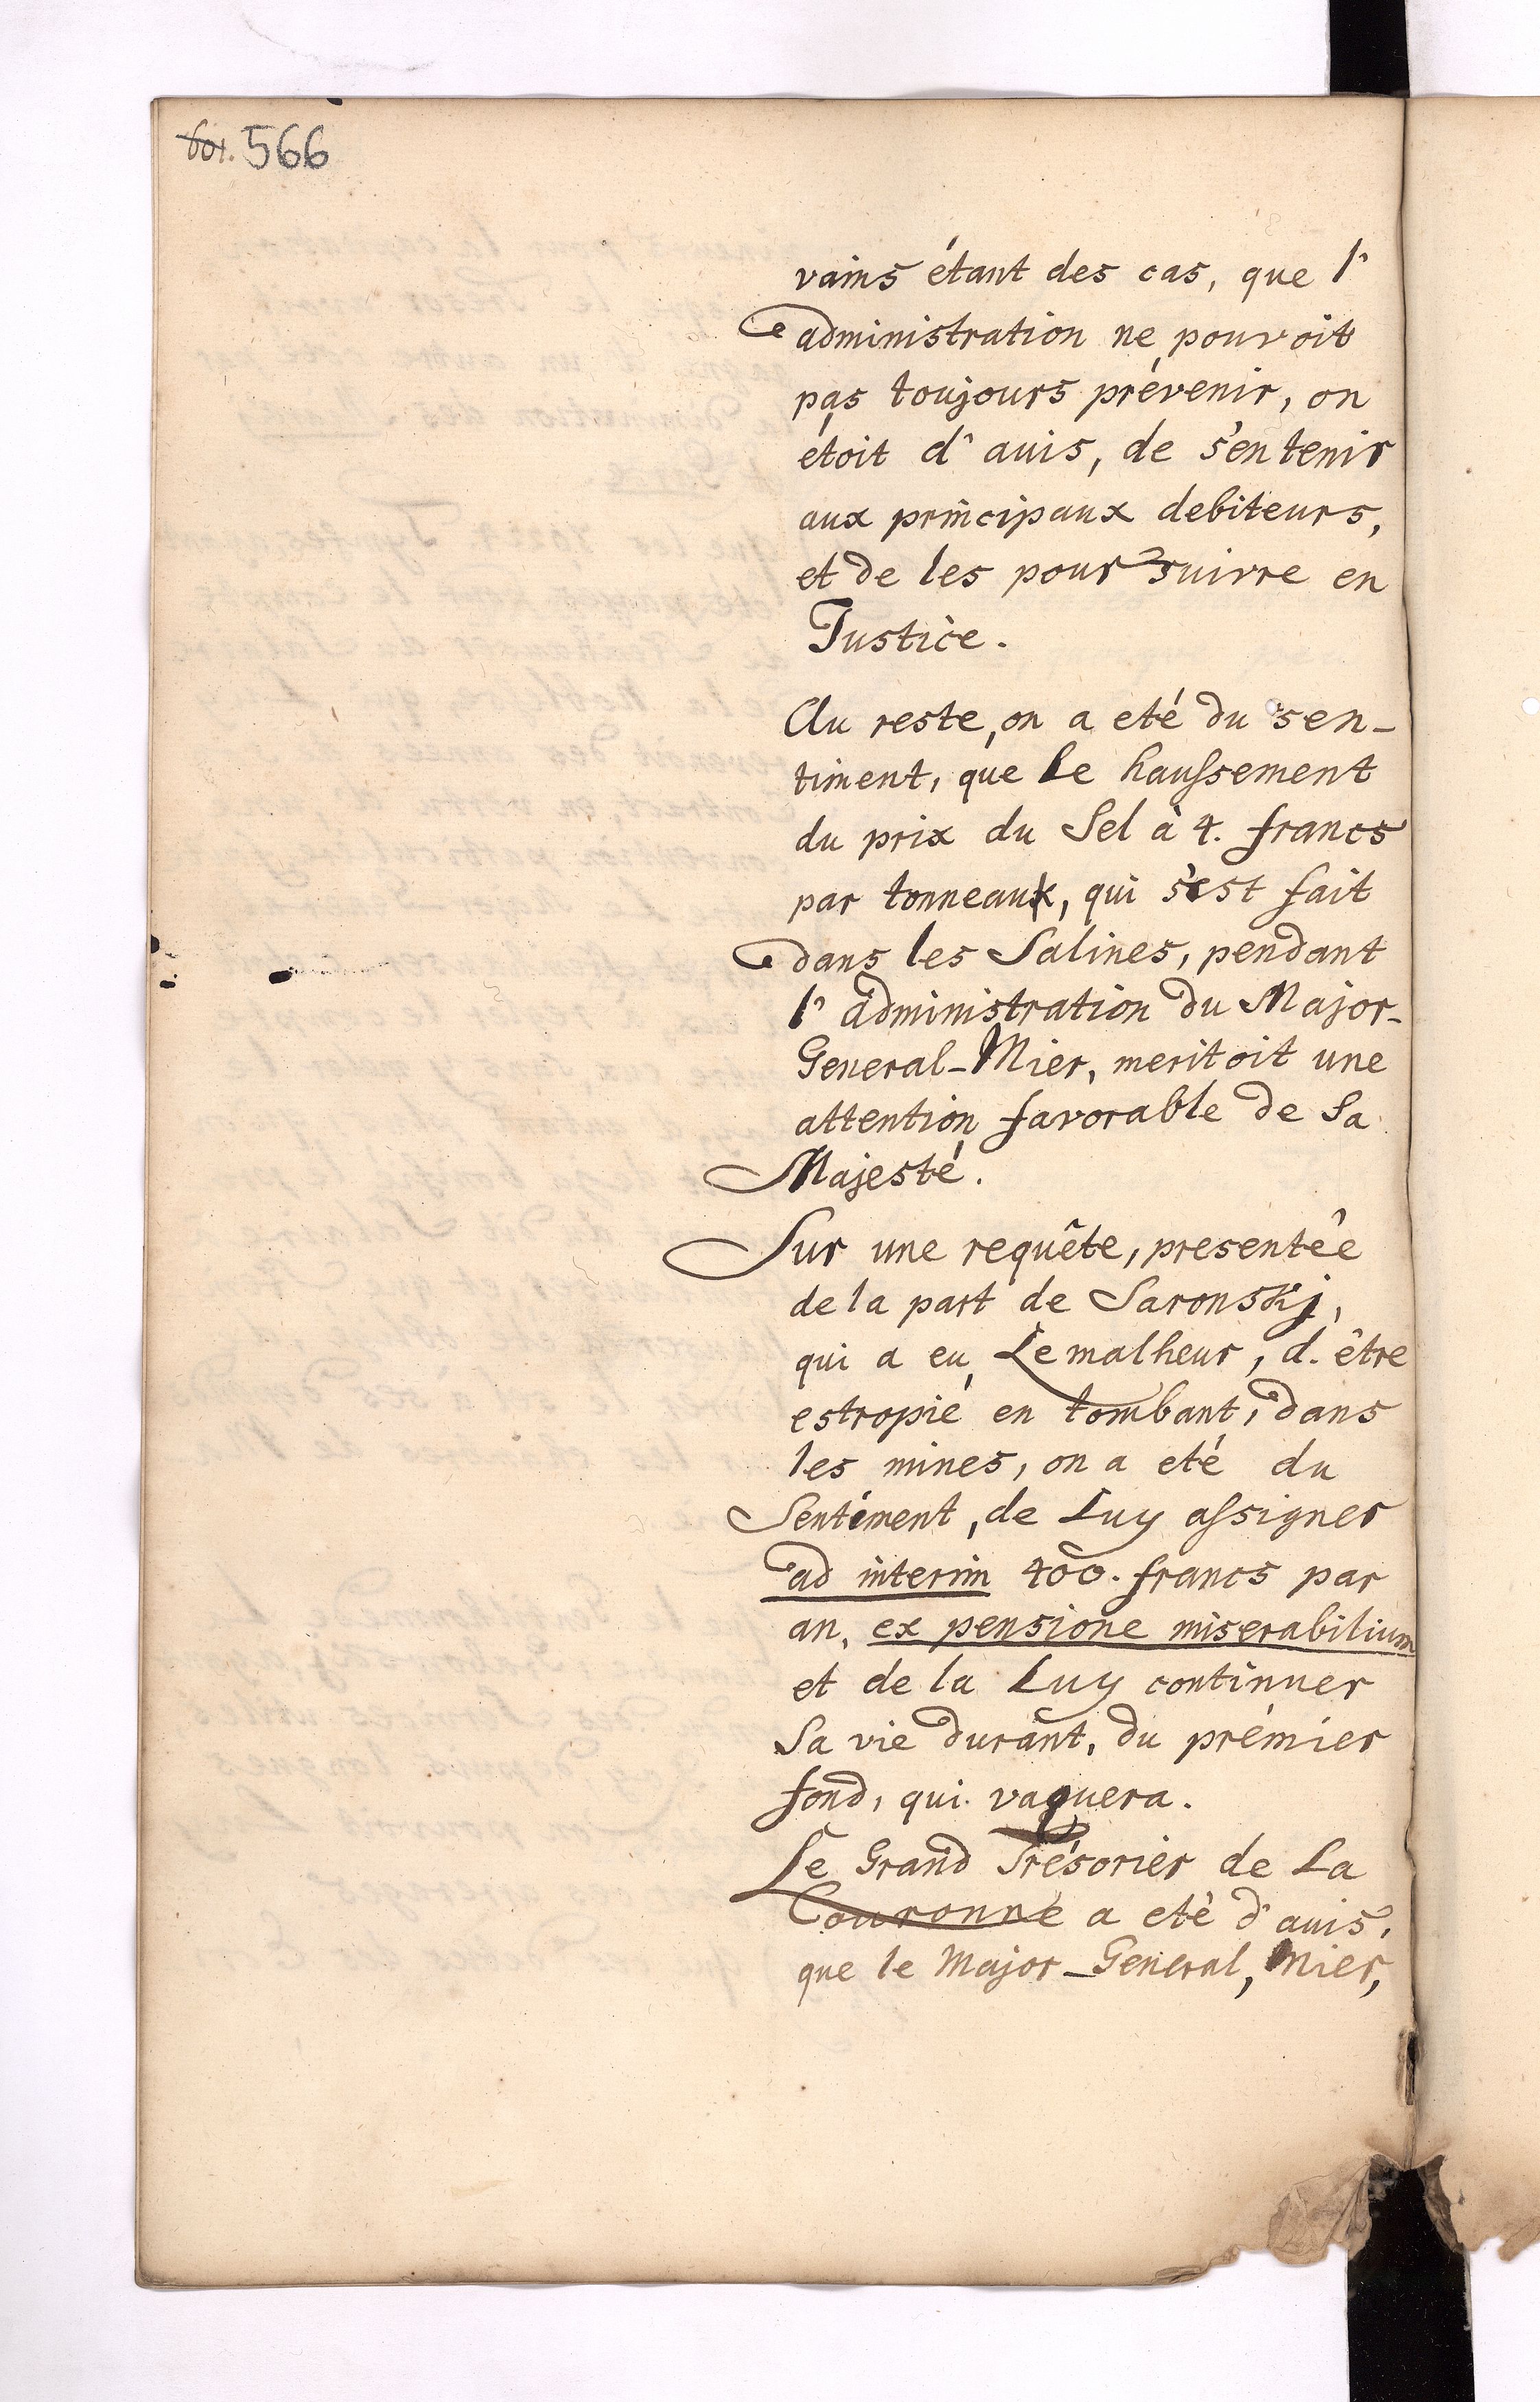 601. 566
vains étant des cas, que l'
administration ne pouvoit
pas toujours prévenir, on
étoit d' auis, de s'en tenir
aux principaux debiteurs,
et de les poursuivre en
Justice.
Au reste, on a eté du sen-
timent, que le haussement
du prix du Sel à 4. francs
par tonneaux, qui s'est fait
dans les Salines, pendant
l' administration du Major-
General-Mier, meritoit une
attention favorable de Sa
Majesté.
Sur une requête, presentée
de la part de Saronskj,
qui a eu Le malheur, d. être
estropié en tombant, dans
les mines, on a eté du
Sentiment, de Luy assigner
ad interim 400. francs par
an, ex pensione miserabilium
et de la Luy continuer
Sa vie durant, du prémier
fond, qui vaquera.
Le Grand Trésorier de La
Couronne a eté d'auis,
que le Major-General, Mier,